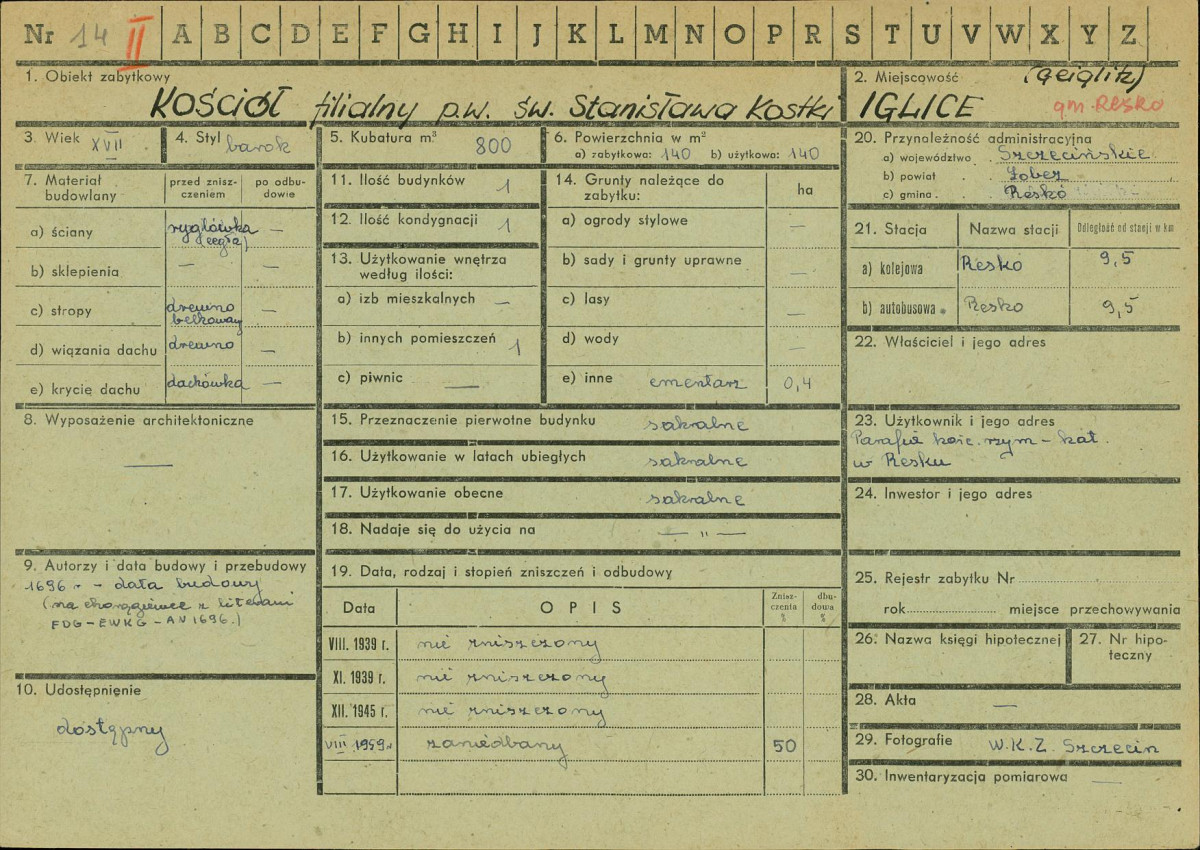 Nr 14 II A B C D E F G H I J K L M N O P R S T U V W X Y Z
1. Obiekt zabytkowy
KOŚCIÓŁ filialny p.w. św. Stanisława Kostki
2. Miejscowość (Geiglitz)
IGLICE gm. Resko
3. Wiek XVII
4. Styl barok
5. Kubatura m³ 800
6. Powierzchnia w m²
a) zabytkowa: 140 b) użytkowa: 140
7. Materiał budowlany
przed zniszczeniem
po odbudowie
a) ściany ryglówka (cegła) —
b) sklepienia — —
c) stropy drewno belkowany —
d) wiązania dachu drewno —
e) krycie dachu dachówka —
8. Wyposażenie architektoniczne
—
9. Autorzy i data budowy i przebudowy
1696 r. - data budowy
(na chorągiewce z literami
FDG-EWKG-AN 1696.)
10. Udostępnienie
dostępny
11. Ilość budynków 1
12. Ilość kondygnacji 1
13. Użytkowanie wnętrza
według ilości:
a) izb mieszkalnych —
b) innych pomieszczeń 1
c) piwnic —
14. Grunty należące do
zabytku: ha
a) ogrody stylowe —
b) sady i grunty uprawne —
c) lasy —
d) wody —
e) inne cmentarz 0,4
15. Przeznaczenie pierwotne budynku sakralne
16. Użytkowanie w latach ubiegłych sakralne
17. Użytkowanie obecne sakralne
18. Nadaje się do użycia na — „ —
19. Data, rodzaj i stopień zniszczeń i odbudowy
Data OPIS Zniszczenia % dbudowa %
VIII. 1939 r. nie zniszczony
XI. 1939 r. nie zniszczony
XII. 1945 r. nie zniszczony
VIII 1959 r. zaniedbany 50
20. Przynależność administracyjna
a) województwo Szczecińskie
b) powiat Łobez
c) gmina Resko
21. Stacja Nazwa stacji Odległość od stacji w km
a) kolejowa Resko 9,5
b) autobusowa Resko 9,5
22. Właściciel i jego adres
23. Użytkownik i jego adres
Parafia kośc. rzym-kat.
w Resku
24. Inwestor i jego adres
25. Rejestr zabytku Nr
rok miejsce przechowywania
26. Nazwa księgi hipotecznej
27. Nr hipoteczny
28. Akta —
29. Fotografie W.K.Z. Szczecin
30. Inwentaryzacja pomiarowa —